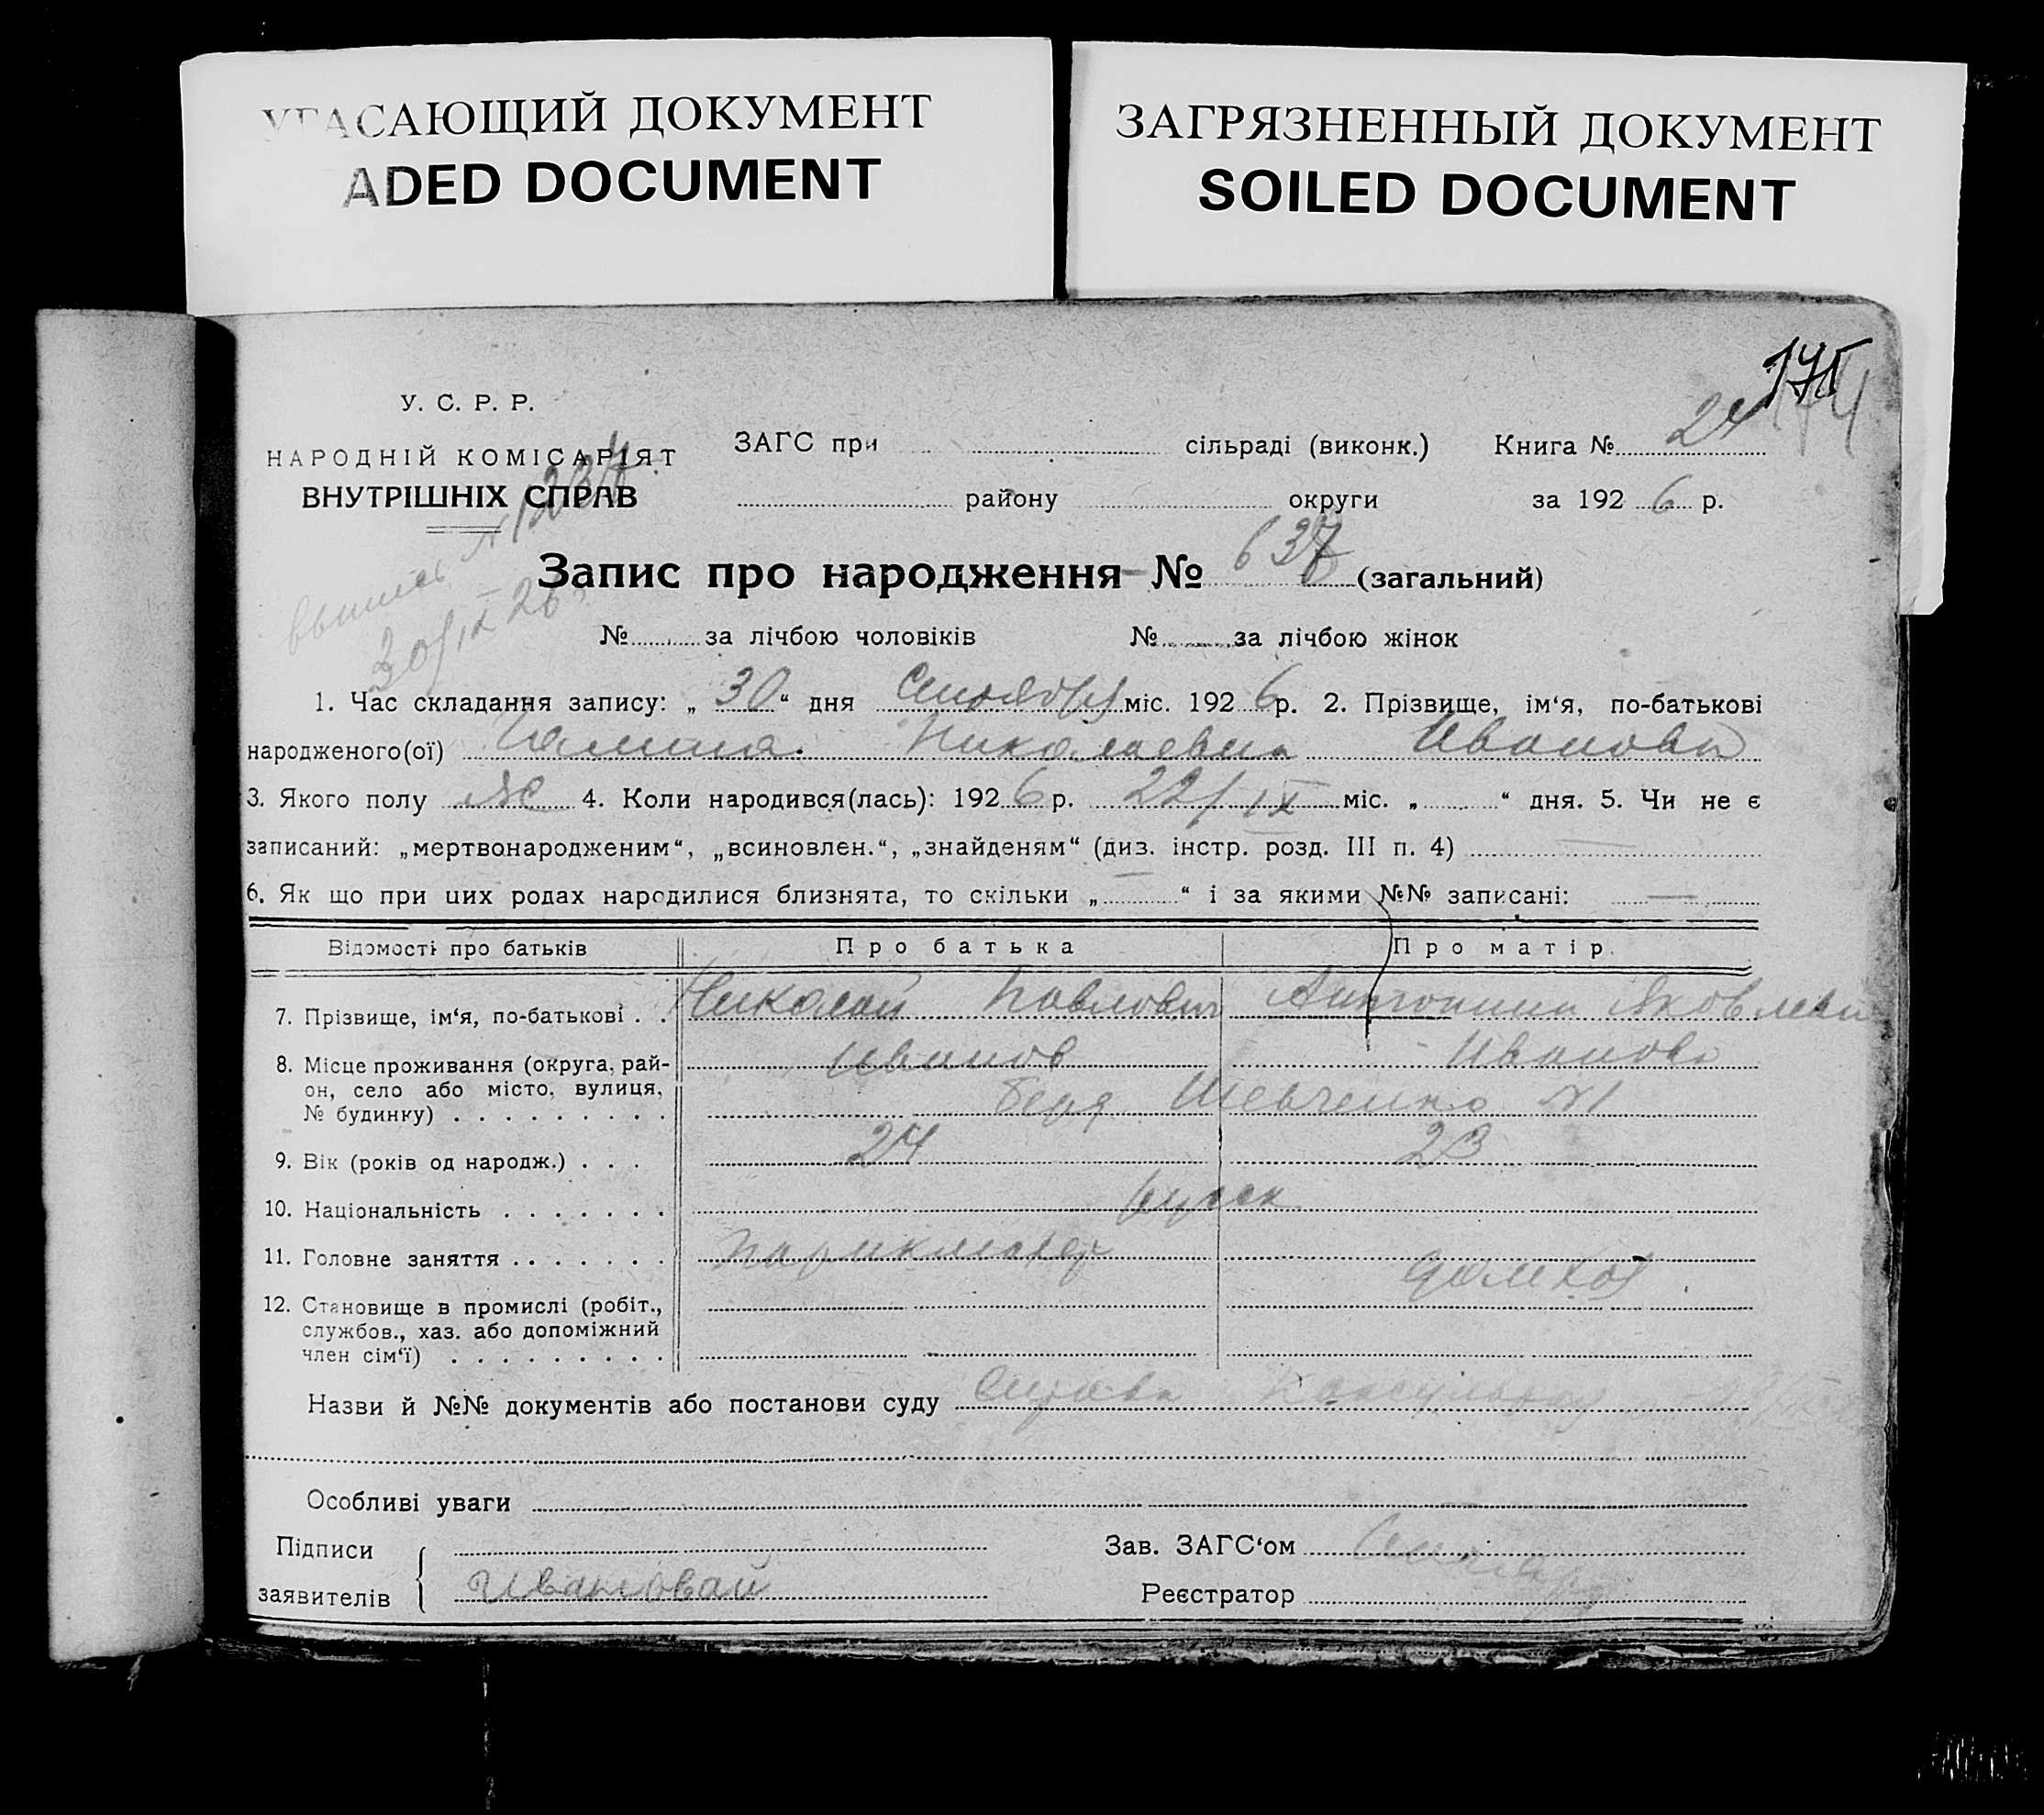 УГАСАЮЩИЙ ДОКУМЕНТ
ADED DOCUMENT
ЗАГРЯЗНЕННЫЙ ДОКУМЕНТ
SOILED DOCUMENT
175
174
У. С. Р. Р.
НАРОДНІЙ КОМІСАРІЯТ
ВНУТРІШНІХ СПРАВ
ЗАГС при сільраді (виконк.) Книга № 24
району округи за 1926 р.
Запис про народження № 637 (загальний)
30/IX 26
№ за лічбою чоловіків № за лічбою жінок
1. Час складання запису: „30“ дня Сентября міс. 1926 р. 2. Прізвище, ім‘я, по-батькові
народженого(ої) Галина Николаевна Иванова
3. Якого полу Же 4. Коли народився(лась): 1926 р. 22/IX міс. „ “ дня. 5. Чи не є
записаний: „мертвонародженим“, „всиновлен.“, „знайденям“ (диз. інстр. розд. III п. 4) —
6. Як що при цих родах народилися близнята, то скільки „—“ і за якими №№ записані: —
Відомості про батьків Про батька Про матір.
7. Прізвище, ім‘я, по-батькові . . Николай Павлович Антонина Яковлевна
8. Місце проживання (округа, рай- Иванов Иванова
он, село або місто, вулиця,
№ будинку) . . . . . . . . . Шевченко №1
9. Вік (років од народж.) . . . 24 23
10. Національність . . . . . . . русск
11. Головне заняття . . . . . . . Парикмахер домхоз
12. Становище в промислі (робіт.,
службов., хаз. або допоміжний
член сім‘ї) . . . . . . . . .
Назви й №№ документів або постанови суду Справка
Особливі уваги
Підписи
заявителів Ивановой
Зав. ЗАГС‘ом
Реєстратор